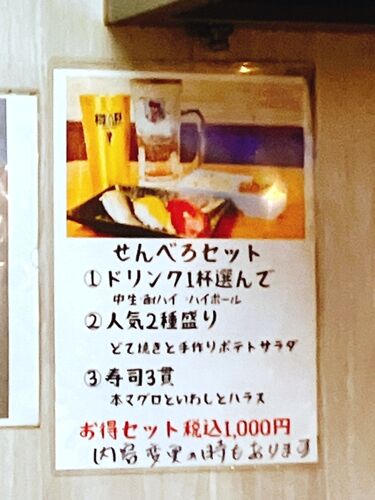 せんべろセット
①ドリンク1杯選んで
中生 酎ハイ ハイボール
②人気2種盛り
どて焼きと手作りポテトサラダ
③寿司3貫
本マグロといわしとハラス
お得セット税込1,000円
内容変更の時もあります